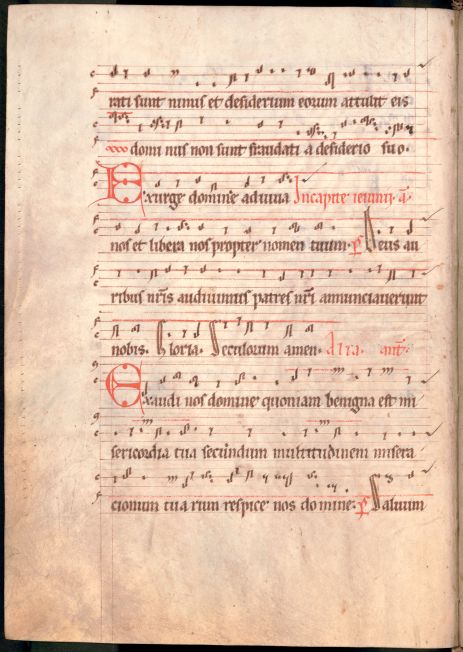 rati sunt nimis et desiderium eorum attulit eis
domi nus non sunt fraudati a desiderio suo.
Exurge domine adiuva In capite ieiunii a͞
nos et libera nos propter nomen tuum. p͞s Deus au
ribus nr̄is audiuimus patres nr̄i annunciauerunt
nobis. Gloria. Seculorum amen. Alia ant͞
Exaudi nos domine quoniam benigna est mi
sericordia tua secundum multitudinem misera
cionum tua rum respice nos do mine. p͞s Saluum